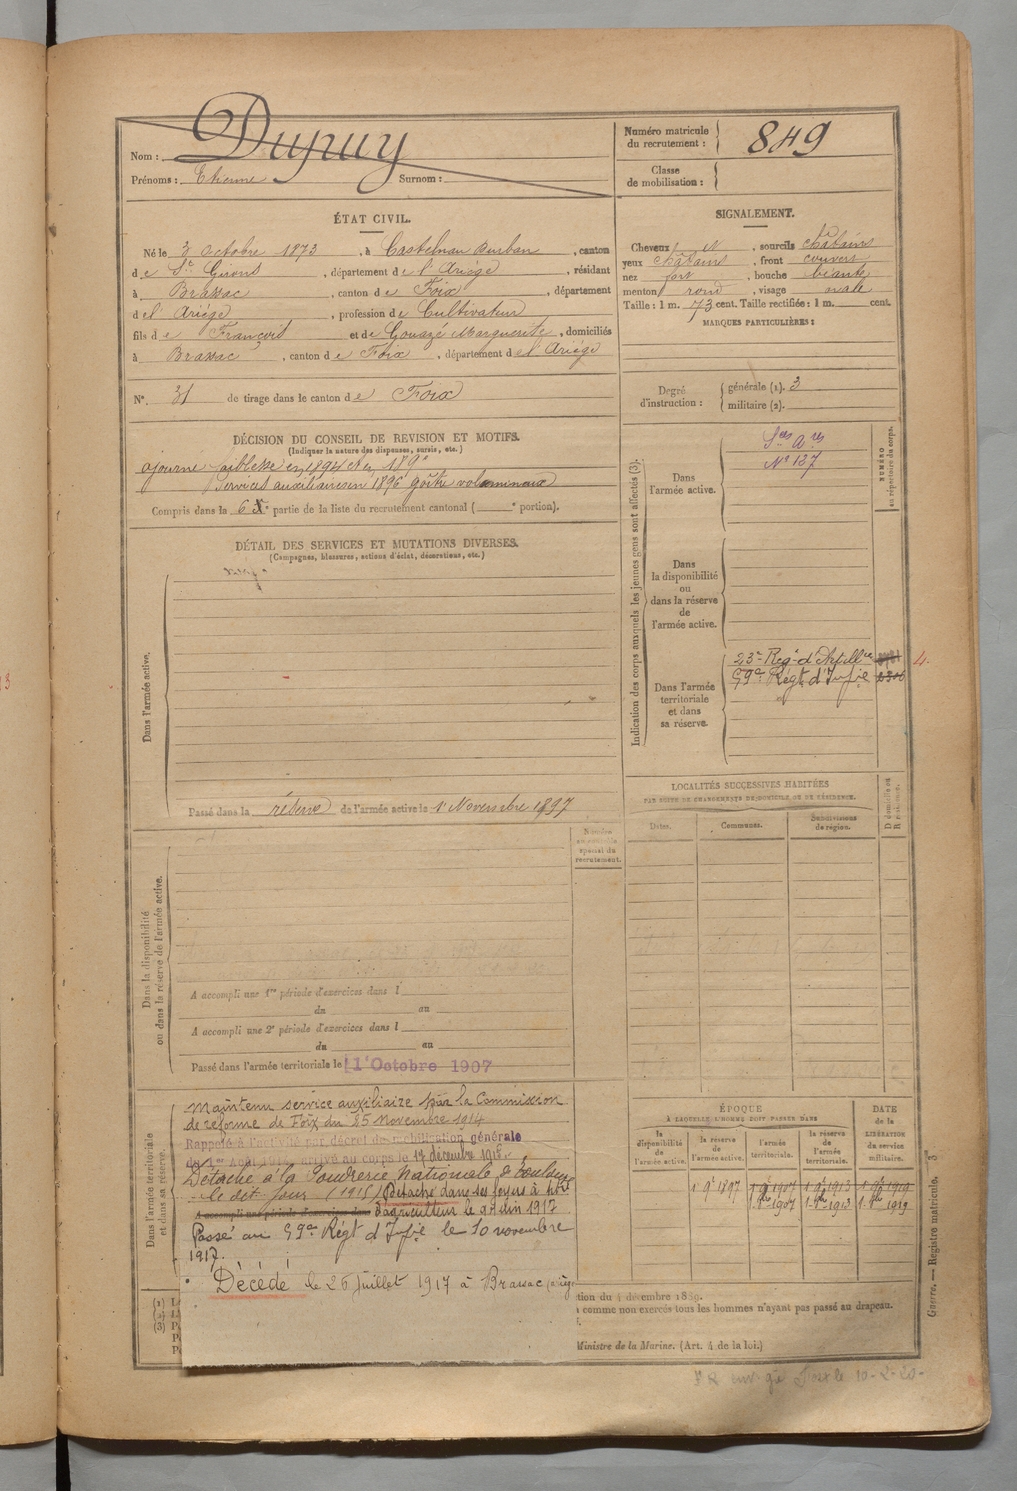 Nom : Dupuy
Prénoms : Etienne Surnom :
Numéro matricule du recrutement : 849
Classe de mobilisation :
ÉTAT CIVIL.
Né le 3 Octobre 1873, à Castelnau Durban, canton
de St Girons, département de l'Ariége, résidant
à Brassac, canton de Foix, département
de l'Ariége, profession de Cultivateur
fils de François et de Gouazé Marguerite, domiciliés
à Brassac, canton de Foix, département de l'Ariége
N° 31 de tirage dans le canton de Foix
SIGNALEMENT.
Cheveux , sourcils châtains
yeux châtains, front couvert
nez fort, bouche béante
menton rond, visage ovale
Taille : 1 m. 73 cent. Taille rectifiée : 1 m. cent.
MARQUES PARTICULIÈRES :
Degré d'instruction : générale (1). 3
militaire (2).
DÉCISION DU CONSEIL DE REVISION ET MOTIFS.
(Indiquer la nature des dispenses, sursis, etc.)
ajourné faiblesse en 1894 et en
Services auxiliaires en 1896 goître volumineux
Compris dans la 6e partie de la liste du recrutement cantonal ( e portion).
DÉTAIL DES SERVICES ET MUTATIONS DIVERSES.
(Campagnes, blessures, actions d'éclat, décorations, etc.)
Dans l'armée active.
Passé dans la réserve de l'armée active le 1er Novembre 1897
Dans la disponibilité
ou dans la réserve de l'armée active.
Numéro
au contrôle
spécial du
recrutement.
A accompli une 1re période d'exercices dans l
du au
A accompli une 2e période d'exercices dans l
du au
Passé dans l'armée territoriale le 1er Octobre 1907
Dans l'armée territoriale
et dans sa réserve.
Maintenu service auxiliaire par la Commission
de réforme de Foix du 25 Novembre 1914
Rappelé à l'activité par décret de mobilisation générale
du 1er Août 1914, arrivé au corps le 17 décembre 1915.
Détaché à la Poudrerie Nationale de
le dit jour (1915) Détaché dans ses foyers à titre
A accompli une période d'exercices dans d'agriculteur le 9 Juin 1917
Passé au 59e Régt d'Infie le 10 novembre
1917.
Décédé le 26 Juillet 1917 à Brassac
Indication des corps auxquels les jeunes gens sont affectés (3).
NUMÉRO
au répertoire du corps.
Dans
l'armée active.
Ces Ares
N° 137
Dans
la disponibilité
ou
dans la réserve
de
l'armée active.
Dans l'armée
territoriale
et dans
sa réserve.
23e Régt d'Artillie
59e Régt d'Infie
4.
LOCALITÉS SUCCESSIVES HABITÉES
PAR SUITE DE CHANGEMENTS DE DOMICILE OU DE RÉSIDENCE.
Dates.
Communes.
Subdivisions
de région.
D domicile ou
R résidence.
ÉPOQUE
À LAQUELLE L'HOMME DOIT PASSER DANS
la disponibilité de l'armée active.
la réserve de l'armée active.
l'armée territoriale.
la réserve de l'armée territoriale.
DATE
de la
LIBÉRATION
du service
militaire.
1 9e 1897 1 9e 1907 1 9e 1913 1 9e 1919
1 8bre 1907 1 8bre 1913 1 8bre 1919
(1)
(2)
(3)
tion du 4 décembre 1889.
comme non exercés tous les hommes n'ayant pas passé au drapeau.
Ministre de la Marine. (Art. 4 de la loi.)
Guerre. — Registre matricule. 3
le 10-2-20-